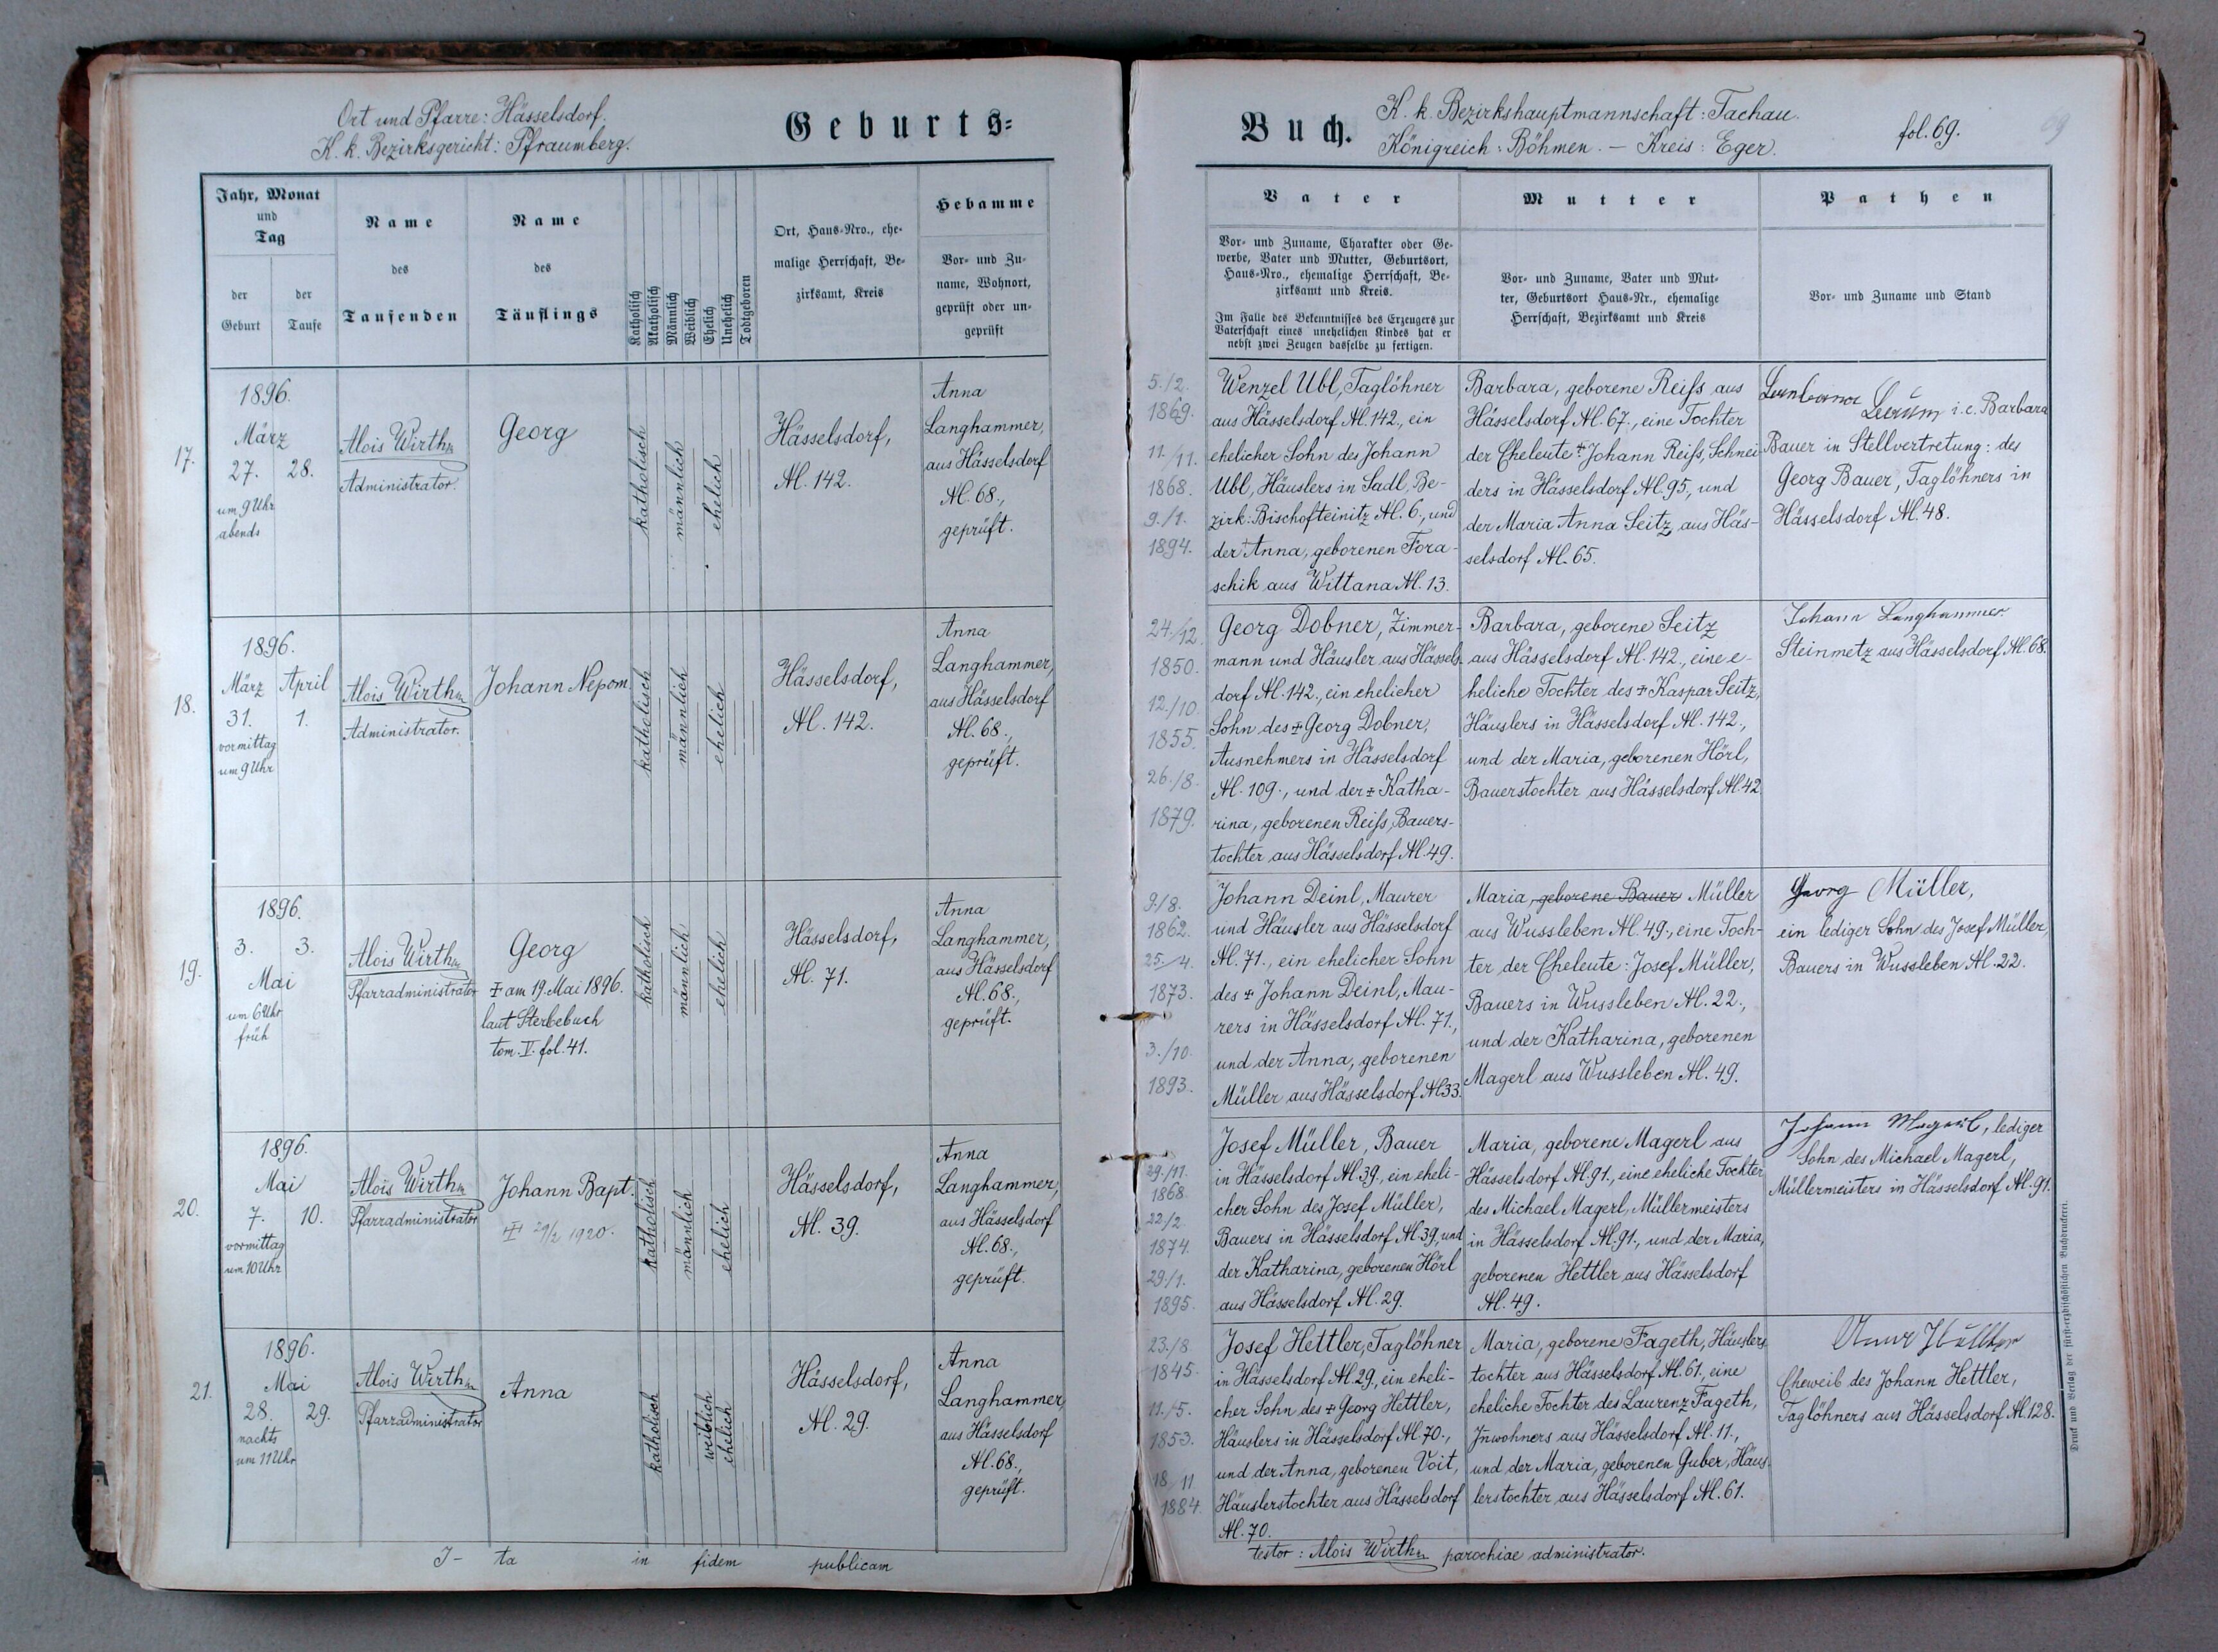 Ort und Pfarre: Hässelsdorf.
K. k. Bezirksgericht: Pfraumberg.
Geburts=
Jahr, Monat
und
Tag
der
Geburt
der
Taufe
Name
des
Taufenden
Name
des
Täuflings
Katholisch
Akatholisch
Männlich
Weiblich
Ehelich
Unehelich
Todtgeboren
Ort, Haus-Nro., ehe-
malige Herrschaft, Be-
zirksamt, Kreis
Hebamme
Vor- und Zu-
name, Wohnort,
geprüft oder un-
geprüft
17.
1896.
März
27. 28.
um 9 Uhr
abends
Alois Wirth
Administrator.
Georg
katholisch
männlich
ehelich
Hässelsdorf,
N. 142.
Anna
Langhammer,
aus Hässelsdorf
N. 68.,
geprüft.
18.
1896.
März April
31. 1.
vormittag
um 9 Uhr
Alois Wirth
Administrator.
Johann Nepom.
katholisch
männlich
ehelich
Hässelsdorf,
N. 142.
Anna
Langhammer,
aus Hässelsdorf
N. 68.,
geprüft.
19.
1896.
3. 3.
Mai
um 6 Uhr
früh
Alois Wirth
Pfarradministrator
Georg
‡ am 19. Mai 1896.
laut Sterbebuch
tom. V. fol. 41.
katholisch
männlich
ehelich
Hässelsdorf,
N. 71.
Anna
Langhammer,
aus Hässelsdorf
N. 68.,
geprüft.
20.
1896.
Mai
7. 10.
vormittag
um 10 Uhr
Alois Wirth
Pfarradministrator
Johann Bapt.
‡ 29/2 1920.
katholisch
männlich
ehelich
Hässelsdorf,
N. 39.
Anna
Langhammer,
aus Hässelsdorf
N. 68.,
geprüft.
21.
1896.
Mai
28. 29.
nachts
um 11 Uhr
Alois Wirth
Pfarradministrator
Anna
katholisch
weiblich
ehelich
Hässelsdorf,
N. 29.
Anna
Langhammer,
aus Hässelsdorf
N. 68.,
geprüft.
I- ta in fidem publicam
Buch.
K. k. Bezirkshauptmannschaft: Tachau.
Königreich: Böhmen. — Kreis: Eger.
fol. 69.
69
Vater
Vor- und Zuname, Charakter oder Ge-
werbe, Vater und Mutter, Geburtsort,
Haus-Nro., ehemalige Herrschaft, Be-
zirksamt und Kreis.
Im Falle des Bekenntnisses des Erzeugers zur
Vaterschaft eines unehelichen Kindes hat er
nebst zwei Zeugen dasselbe zu fertigen.
Mutter
Vor- und Zuname, Vater und Mut-
ter, Geburtsort Haus-Nr., ehemalige
Herrschaft, Bezirksamt und Kreis
Pathen
Vor- und Zuname und Stand
5./2.
1869.
11./11.
1868.
9./1.
1894.
Wenzel Ubl, Taglöhner
aus Hässelsdorf N. 142., ein
ehelicher Sohn des Johann
Ubl, Häuslers in Sadl, Be-
zirk: Bischofteinitz N. 6., und
der Anna, geborenen Fora-
schik aus Wittana N. 13.
Barbara, geborene Reiß aus
Hässelsdorf N. 67., eine Tochter
der Eheleute ‡ Johann Reiß, Schnei-
ders in Hässelsdorf N. 95., und
der Maria Anna Seitz, aus Häs-
selsdorf N. 65.
i. e. Barbara
Bauer in Stellvertretung: des
Georg Bauer, Taglöhners in
Hässelsdorf N. 48.
24./12.
1850.
12./10.
1855.
26./8.
1879.
Georg Dobner, Zimmer-
mann und Häusler aus Hässels-
dorf N. 142., ein ehelicher
Sohn des ‡ Georg Dobner,
Ausnehmers in Hässelsdorf
N. 109., und der ‡ Katha-
rina, geborenen Reiß, Bauers-
tochter aus Hässelsdorf N. 49.
Barbara, geborene Seitz
aus Hässelsdorf N. 142., eine e-
heliche Tochter des ‡ Kaspar Seitz,
Häuslers in Hässelsdorf N. 142.,
und der Maria, geborenen Hörl,
Bauerstochter aus Hässelsdorf N. 42.
Johann Langhammer
Steinmetz aus Hässelsdorf N. 68.
9./8.
1862.
25./4.
1873.
3./10.
1893.
Johann Deinl, Maurer
und Häusler aus Hässelsdorf
N. 71., ein ehelicher Sohn
des ‡ Johann Deinl, Mau-
rers in Hässelsdorf N. 71.,
und der Anna, geborenen
Müller aus Hässelsdorf N. 33.
Maria, geborene Bauer Müller
aus Wussleben N. 49., eine Toch-
ter der Eheleute: Josef Müller,
Bauers in Wussleben N. 22.,
und der Katharina, geborenen
Magerl aus Wussleben N. 49.
Georg Müller,
ein lediger Sohn des Josef Müller,
Bauers in Wussleben N. 22.
29./11.
1868.
22./2.
1874.
29./1.
1895.
Josef Müller, Bauer
in Hässelsdorf N. 39., ein eheli-
cher Sohn des Josef Müller,
Bauers in Hässelsdorf N. 39., und
der Katharina, geborenen Hörl
aus Hässelsdorf N. 29.
Maria, geborene Magerl aus
Hässelsdorf N. 91., eine eheliche Tochter
des Michael Magerl, Müllermeisters
in Hässelsdorf N. 91., und der Maria,
geborenen Hettler aus Hässelsdorf
N. 49.
Johann Magerl, lediger
Sohn des Michael Magerl,
Müllermeisters in Hässelsdorf N. 91.
23./8.
1845.
11./5.
1853.
18/11
1884.
Josef Hettler, Taglöhner
in Hässelsdorf N. 29., ein eheli-
cher Sohn des ‡ Georg Hettler,
Häuslers in Hässelsdorf N. 70.,
und der Anna, geborenen Voit,
Häuslerstochter aus Hässelsdorf
N. 70.
Maria, geborene Fageth, Häuslers-
tochter aus Hässelsdorf N. 61., eine
eheliche Tochter des Laurenz Fageth,
Inwohners aus Hässelsdorf N. 11.,
und der Maria, geborenen Guber, Häus-
lerstochter aus Hässelsdorf N. 61.
Eheweib des Johann Hettler,
Taglöhners aus Hässelsdorf N. 128.
testor: Alois Wirth parochiae administrator.
Druck und Verlag der fürst-erzbischöflichen Buchdruckerei.